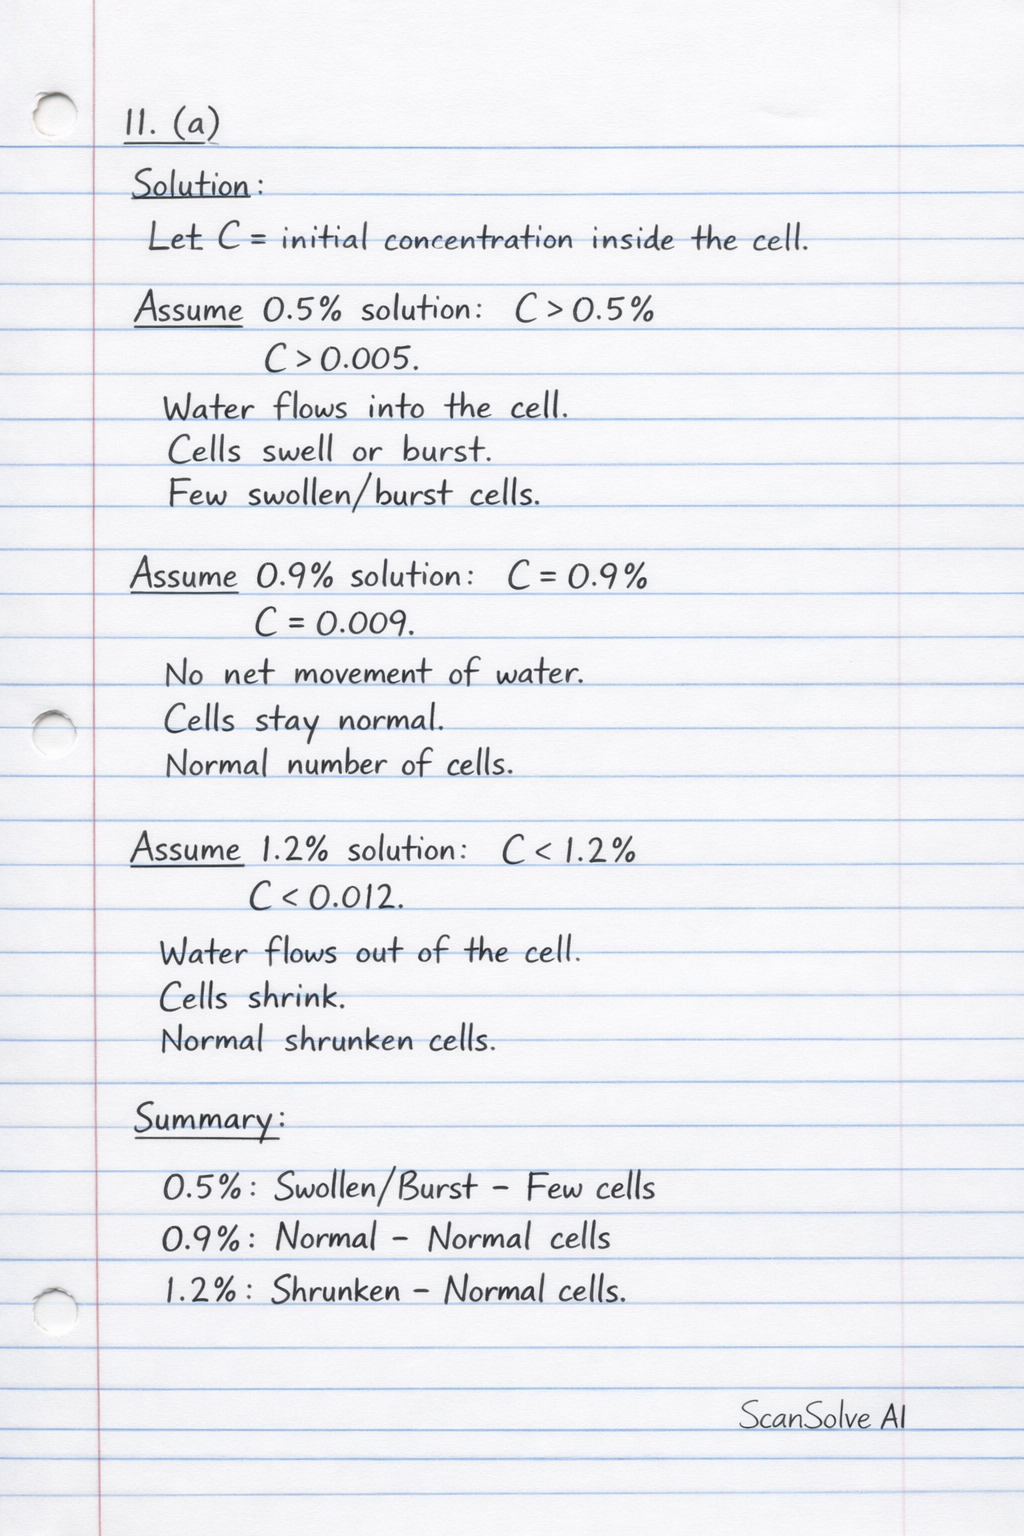 11. (a)
Solution:
Let C = initial concentration inside the cell.
Assume 0.5% solution: C > 0.5%
C > 0.005.
Water flows into the cell.
Cells swell or burst.
Few swollen/burst cells.
Assume 0.9% solution: C = 0.9%
C = 0.009.
No net movement of water.
Cells stay normal.
Normal number of cells.
Assume 1.2% solution: C < 1.2%
C < 0.012.
Water flows out of the cell.
Cells shrink.
Normal shrunken cells.
Summary:
0.5%: Swollen/Burst – Few cells
0.9%: Normal – Normal cells
1.2%: Shrunken – Normal cells.
ScanSolve AI